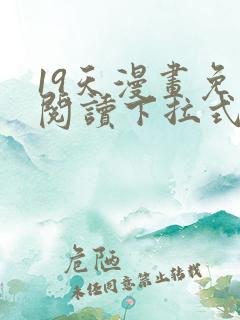 19天漫畫免
閱讀下拉式
危陋
未经同意禁止转载